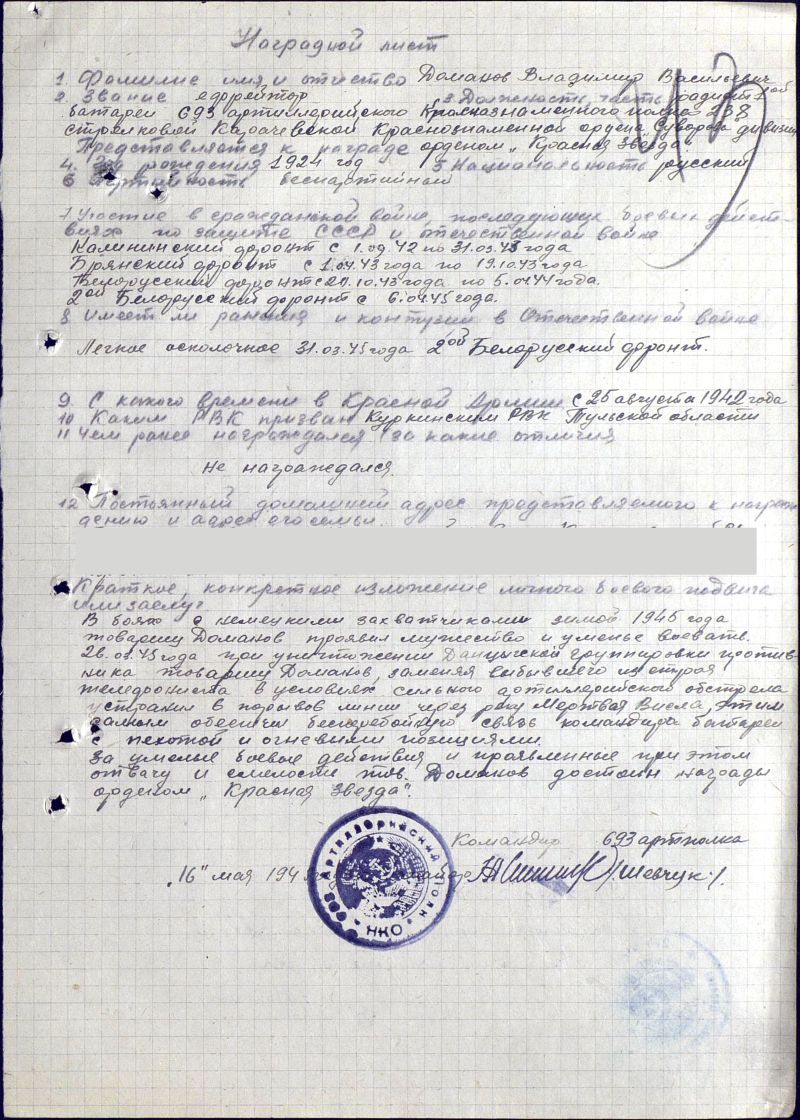 Наградной лист
1. Фамилие имя и отчество Доманов Владимир Васильевич
2. Звание ефрейтор 3. Должность, часть радист
батареи 693 артиллерийского Краснознаменного полка 238
стрелковой Карачевской Краснознаменной ордена „Суворова дивизии
Представляется к награде орденом „Красная Звезда"
4. Год рождения 1924 год 5 Национальность русский
6 Партийность беспартийный
7 Участие в гражданской войне, последующих боевых дейст-
виях по защите СССР и отечественной войне
Калининский фронт с 1.09.42 по 31.03.43 года
Брянский фронт с 1.04.43 года по 19.10.43 года
Белорусский фронт с 20.10.43 года по 5.04.44 года.
2ой Белорусский фронт с 6.04.45 года.
8 Имеет ли ранения и контузии в Отечественной войне
Легкое осколочное 31.03.45 года 2ой Белорусский фронт.
9. С какого времени в Красной Армии с 25 августа 1942 года
10 Каким РВК призван Куркинским РВК Тульской области
11 Чем ранее награждался (за какие отличия
Не награждался.
12 Постоянный домашний адрес представляемого к награж-
дению и адрес его семьи.
Краткое, конкретное изложение личного боевого подвига
или заслуг
В боях с немецкими захватчиками зимой 1945 года
товарищ Доманов проявил мужество и уменье воевать.
26.03.45 года при уничтожении Данцигской группировки против-
ника товарищ Доманов, заменяя выбывшего из строя
телефониста в условиях сильного артиллерийского обстрела
устранил порывов линии через реку Мертвая Висла, этим
самым обеспечил бесперебойную связь командира батареи
с пехотой и огневыми позициями.
За умелые боевые действия и проявленные при этом
отвагу и смелость тов. Доманов достоин награды
орденом „Красная Звезда".
Командир 693 артполка
„16" мая 194 майор /Шевчук/.
693 Артиллерийский полк
НКО